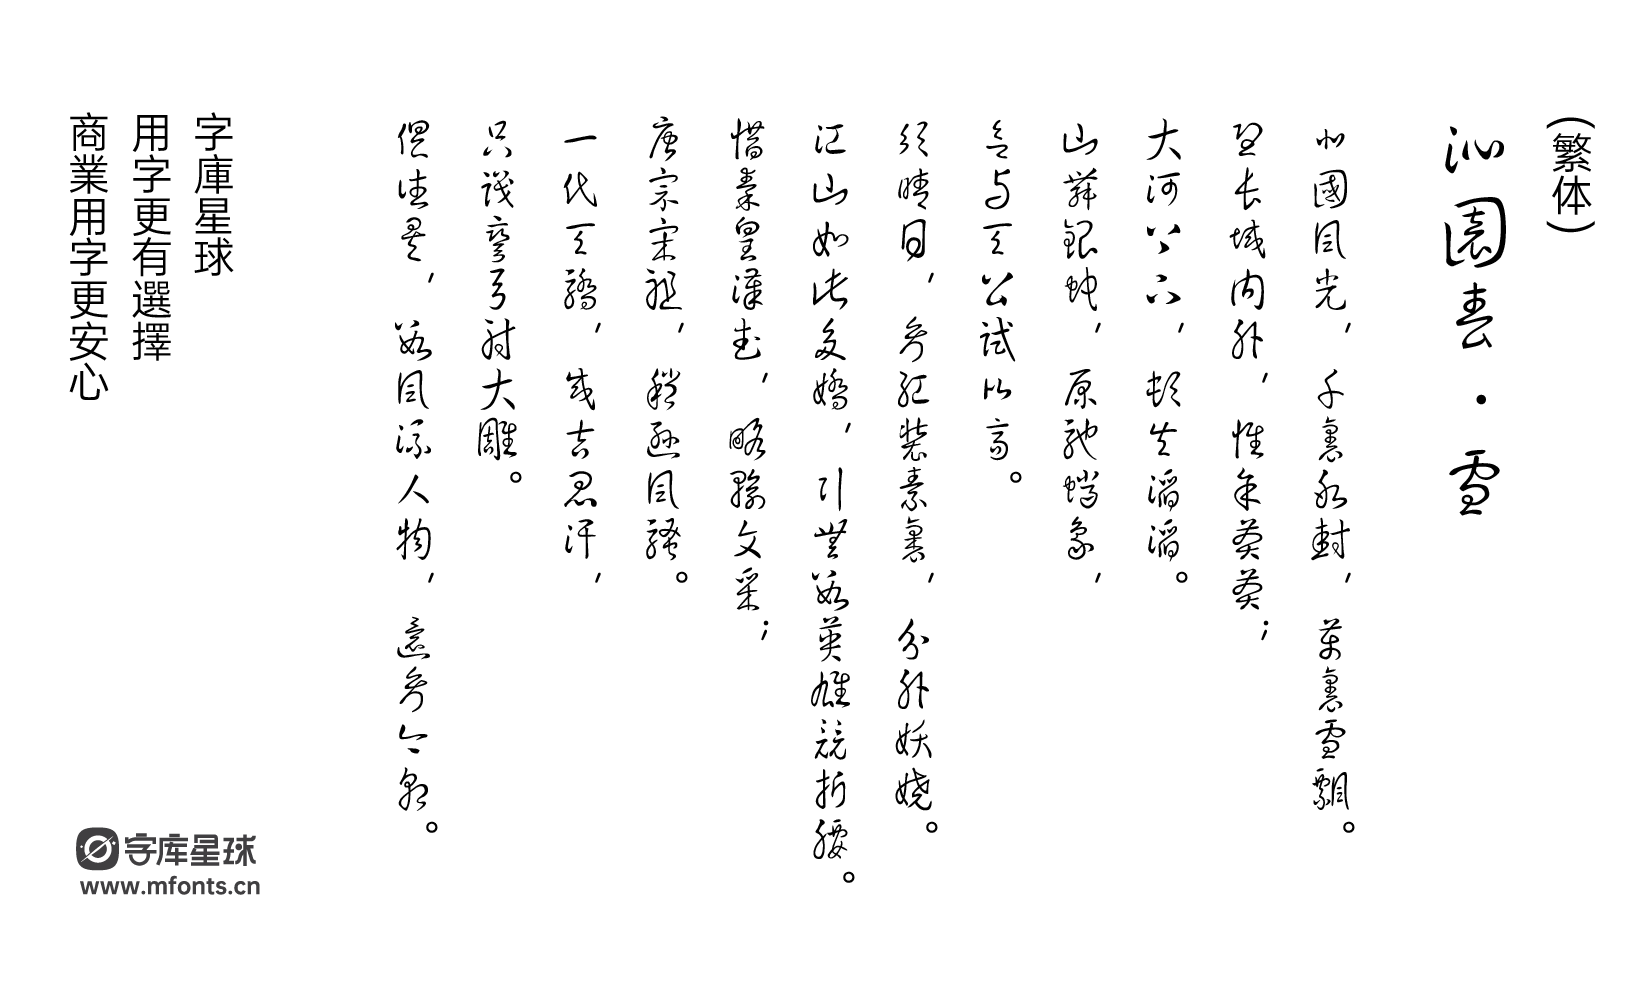 (繁体)
沁園春·雪
北國風光，千裏冰封，萬裏雪飄。
望長城內外，惟餘莽莽；
大河上下，頓失滔滔。
山舞銀蛇，原馳蠟象，
欲與天公試比高。
須晴日，看紅裝素裹，分外妖嬈。
江山如此多嬌，引無數英雄競折腰。
惜秦皇漢武，略輸文采；
唐宗宋祖，稍遜風騷。
一代天驕，成吉思汗，
只識彎弓射大雕。
俱往矣，數風流人物，還看今朝。
字庫星球
用字更有選擇
商業用字更安心
字库星球
www.mfonts.cn